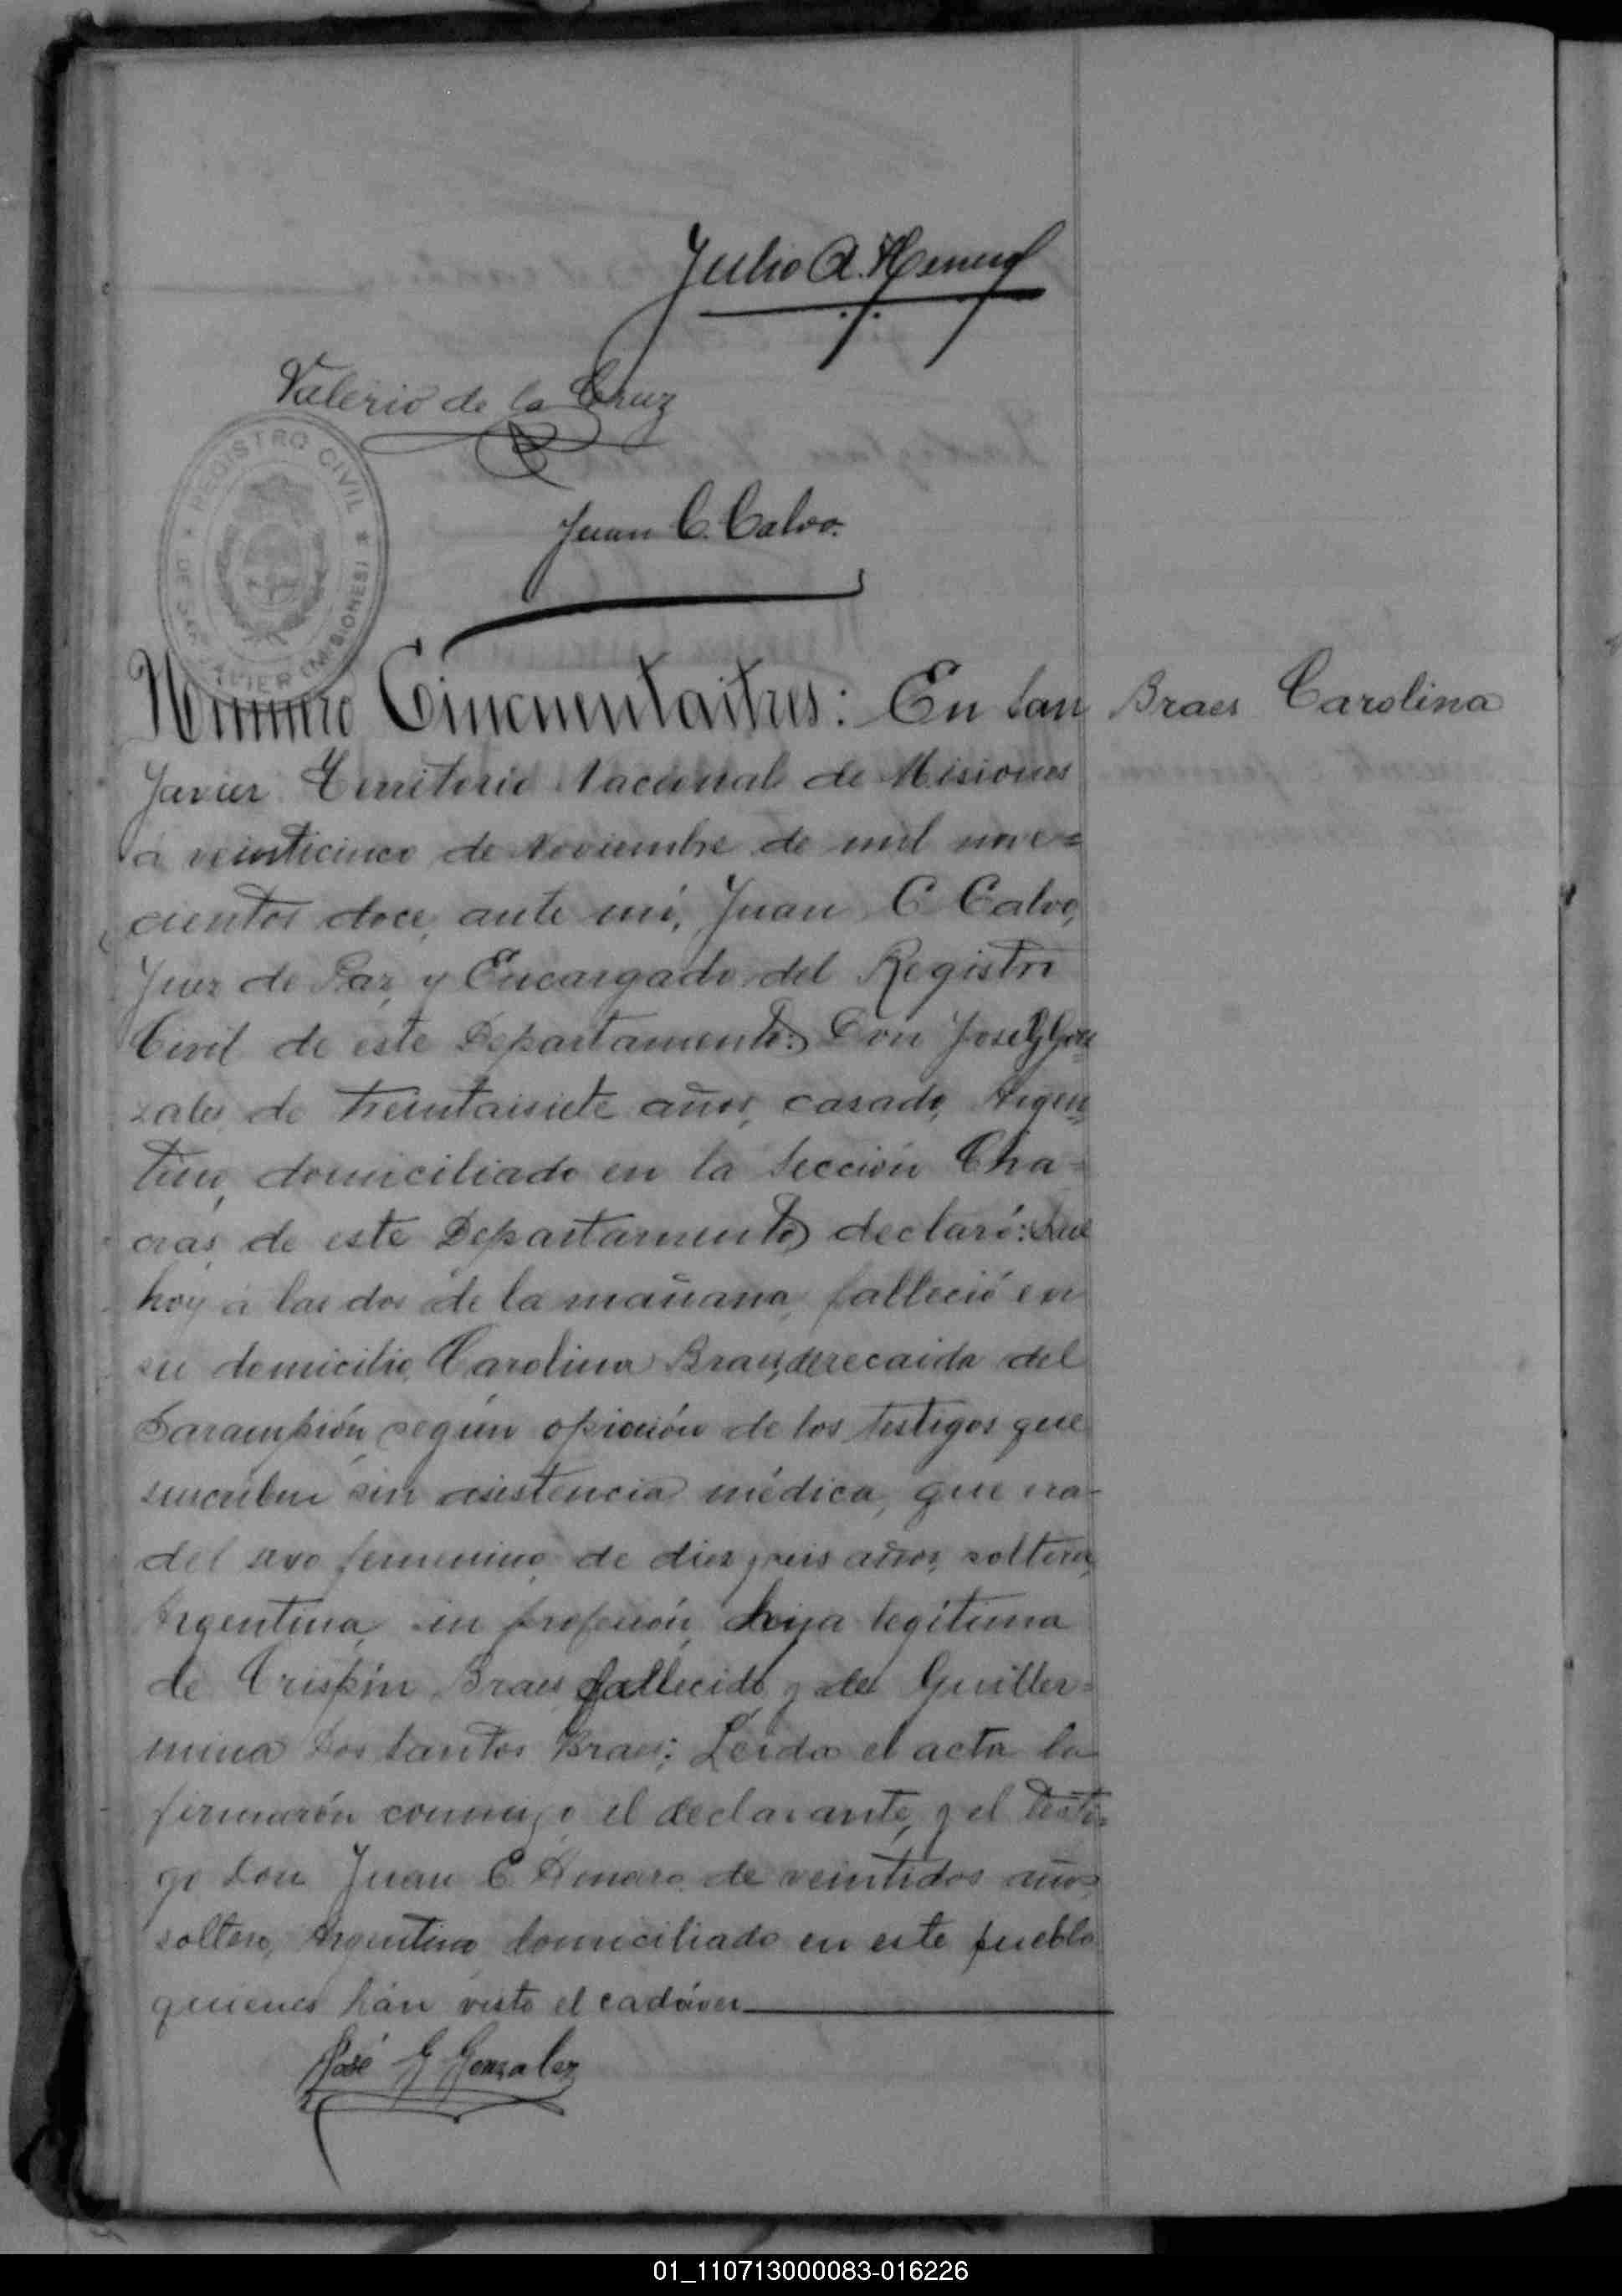 Julio A.
Valerio de la Cruz
REGISTRO CIVIL
DE SAN JAVIER (MISIONES)
Juan C. Calvo.
Número Cincuentaitres: En San
Braes Carolina
Javier Territorio Nacional de Misiones
á veinticinco de Noviembre de mil nove=
cientos doce, ante mí, Juan C Calvo,
Juez de Paz y Encargado del Registro
Civil de este Departamento: Don José G Gon
zales, de treintaisiete años, casado, Argen=
tino, domiciliado en la Sección Cha=
cras, de este Departamento declaró: Que
hoy á las dos de la mañana, falleció en
su domicilio, Carolina Braes, de recaida del
Sarampión, según opinión de los testigos que
suscriben sin asistencia médica, que era
del sexo femenino, de diez y seis años, soltera,
Argentina, sin profesión, hija legítima
de Crispín Braes fallecido y de Guiller=
mina Dos Santos Braes; Leida el acta la
firmarón conmigo el declarante, y el testi=
go Don Juan C de veintidos años
soltero, Argentino domiciliado en este pueblo
quienes hán visto el cadáver
José G Gonzalez
01_110713000083-016226